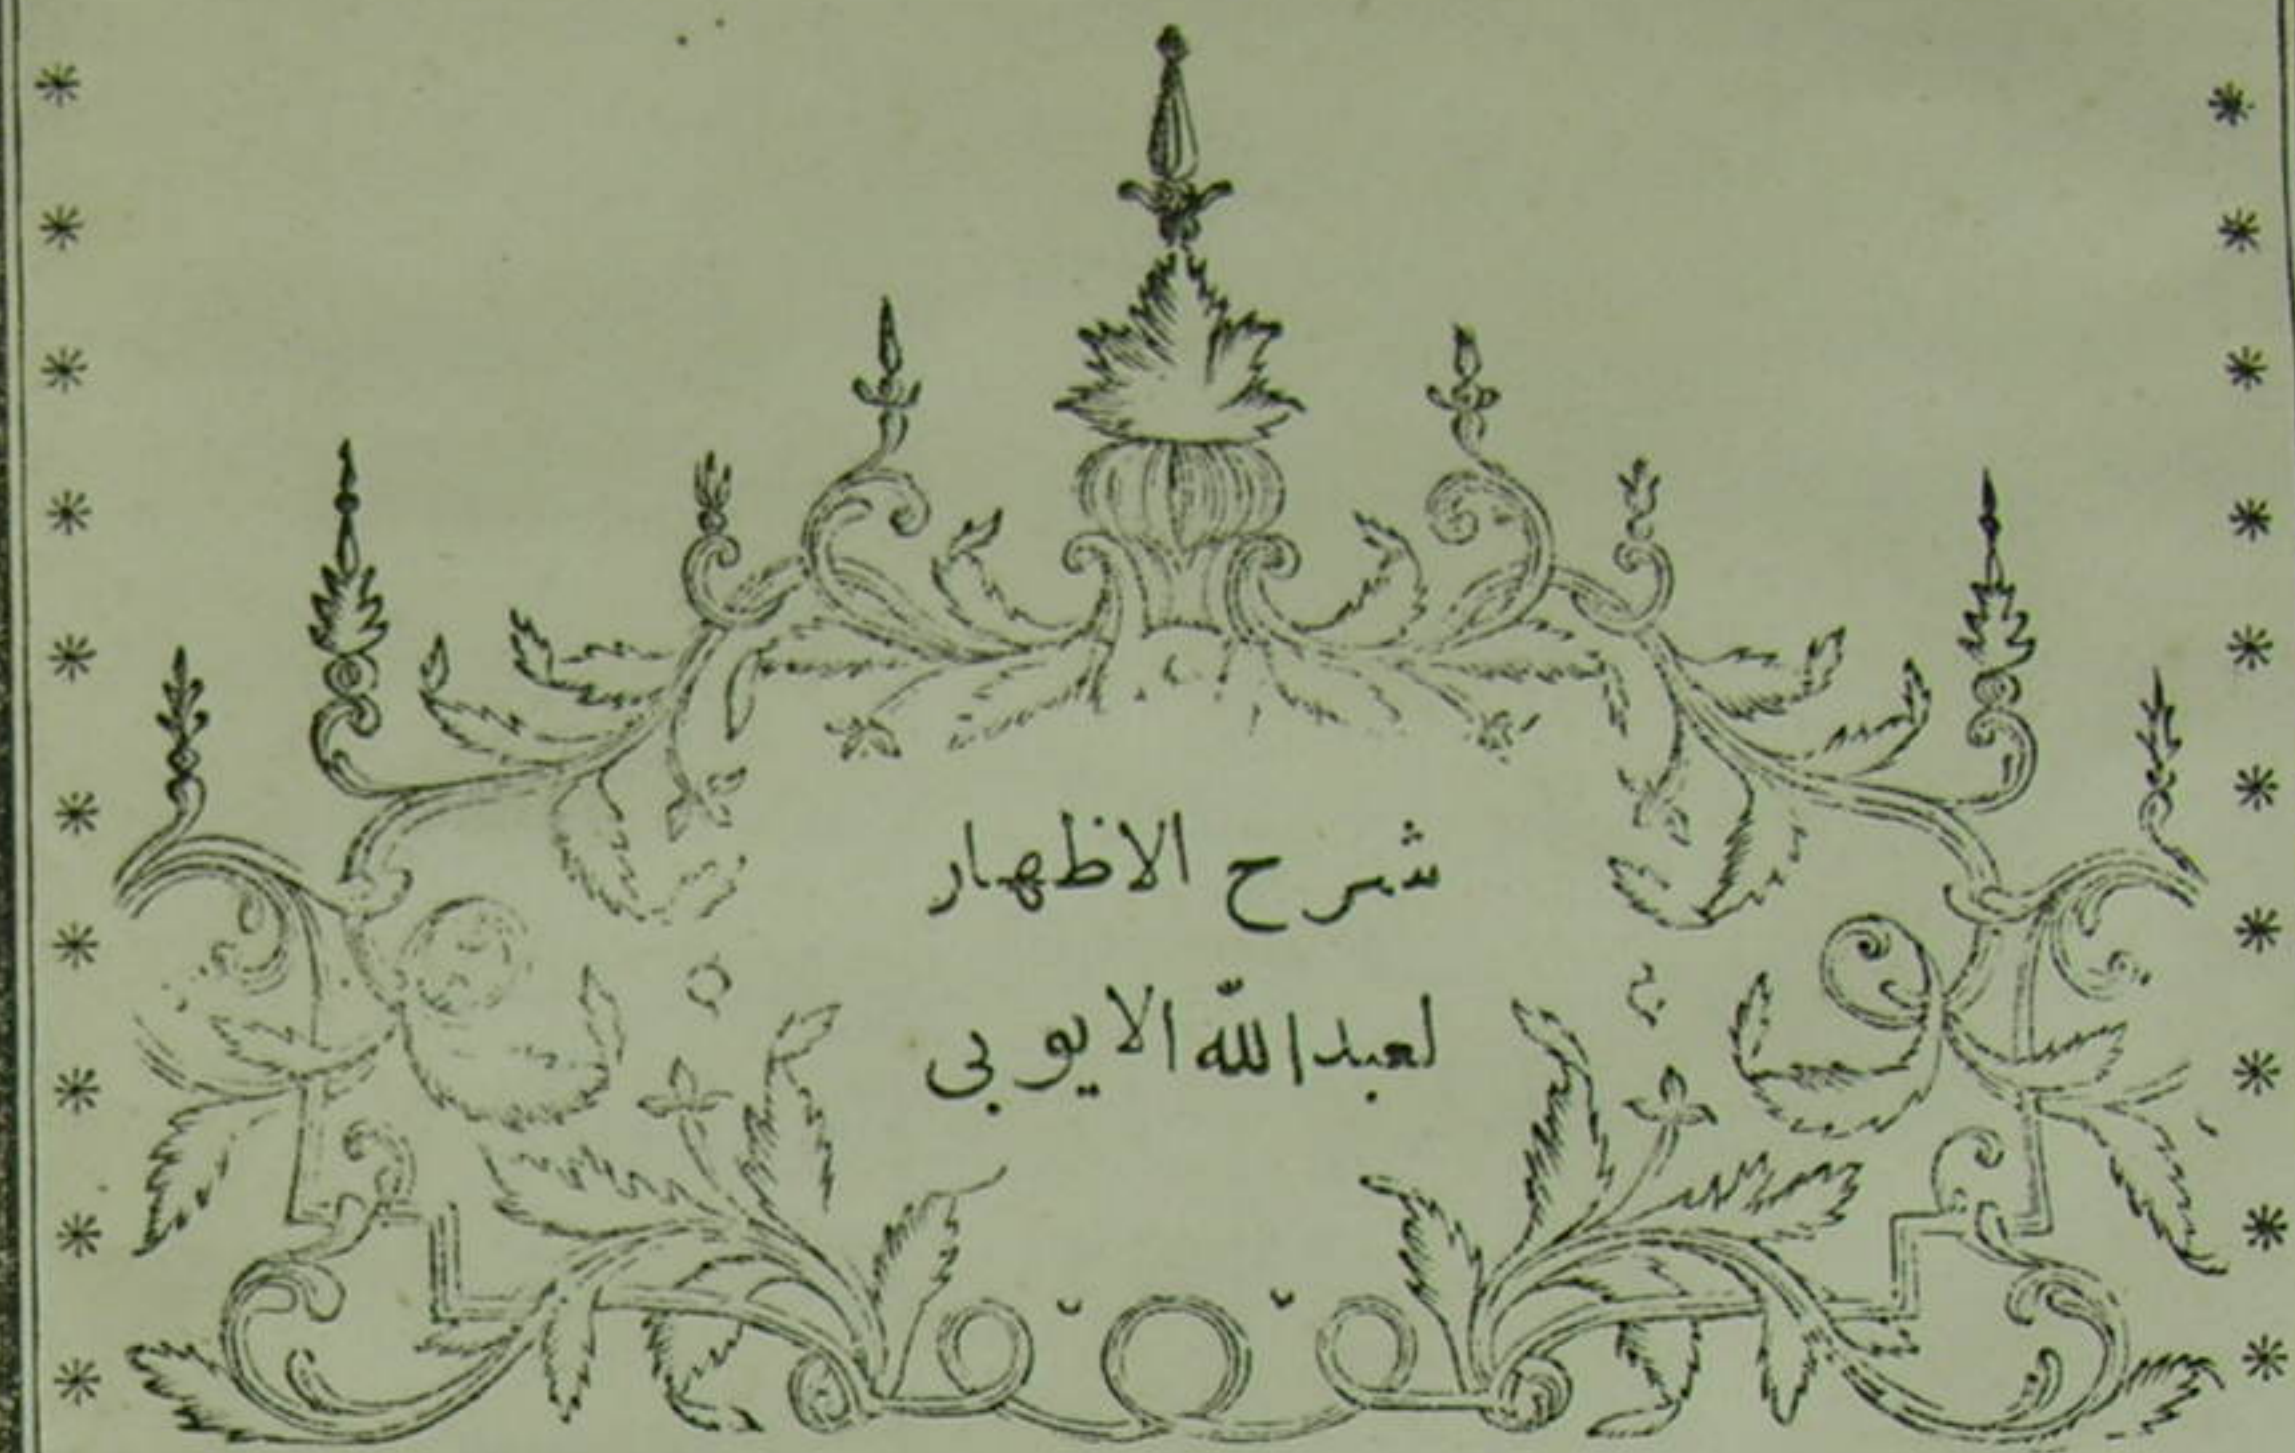 شرح الاظهار
لعبد الله الايوبى